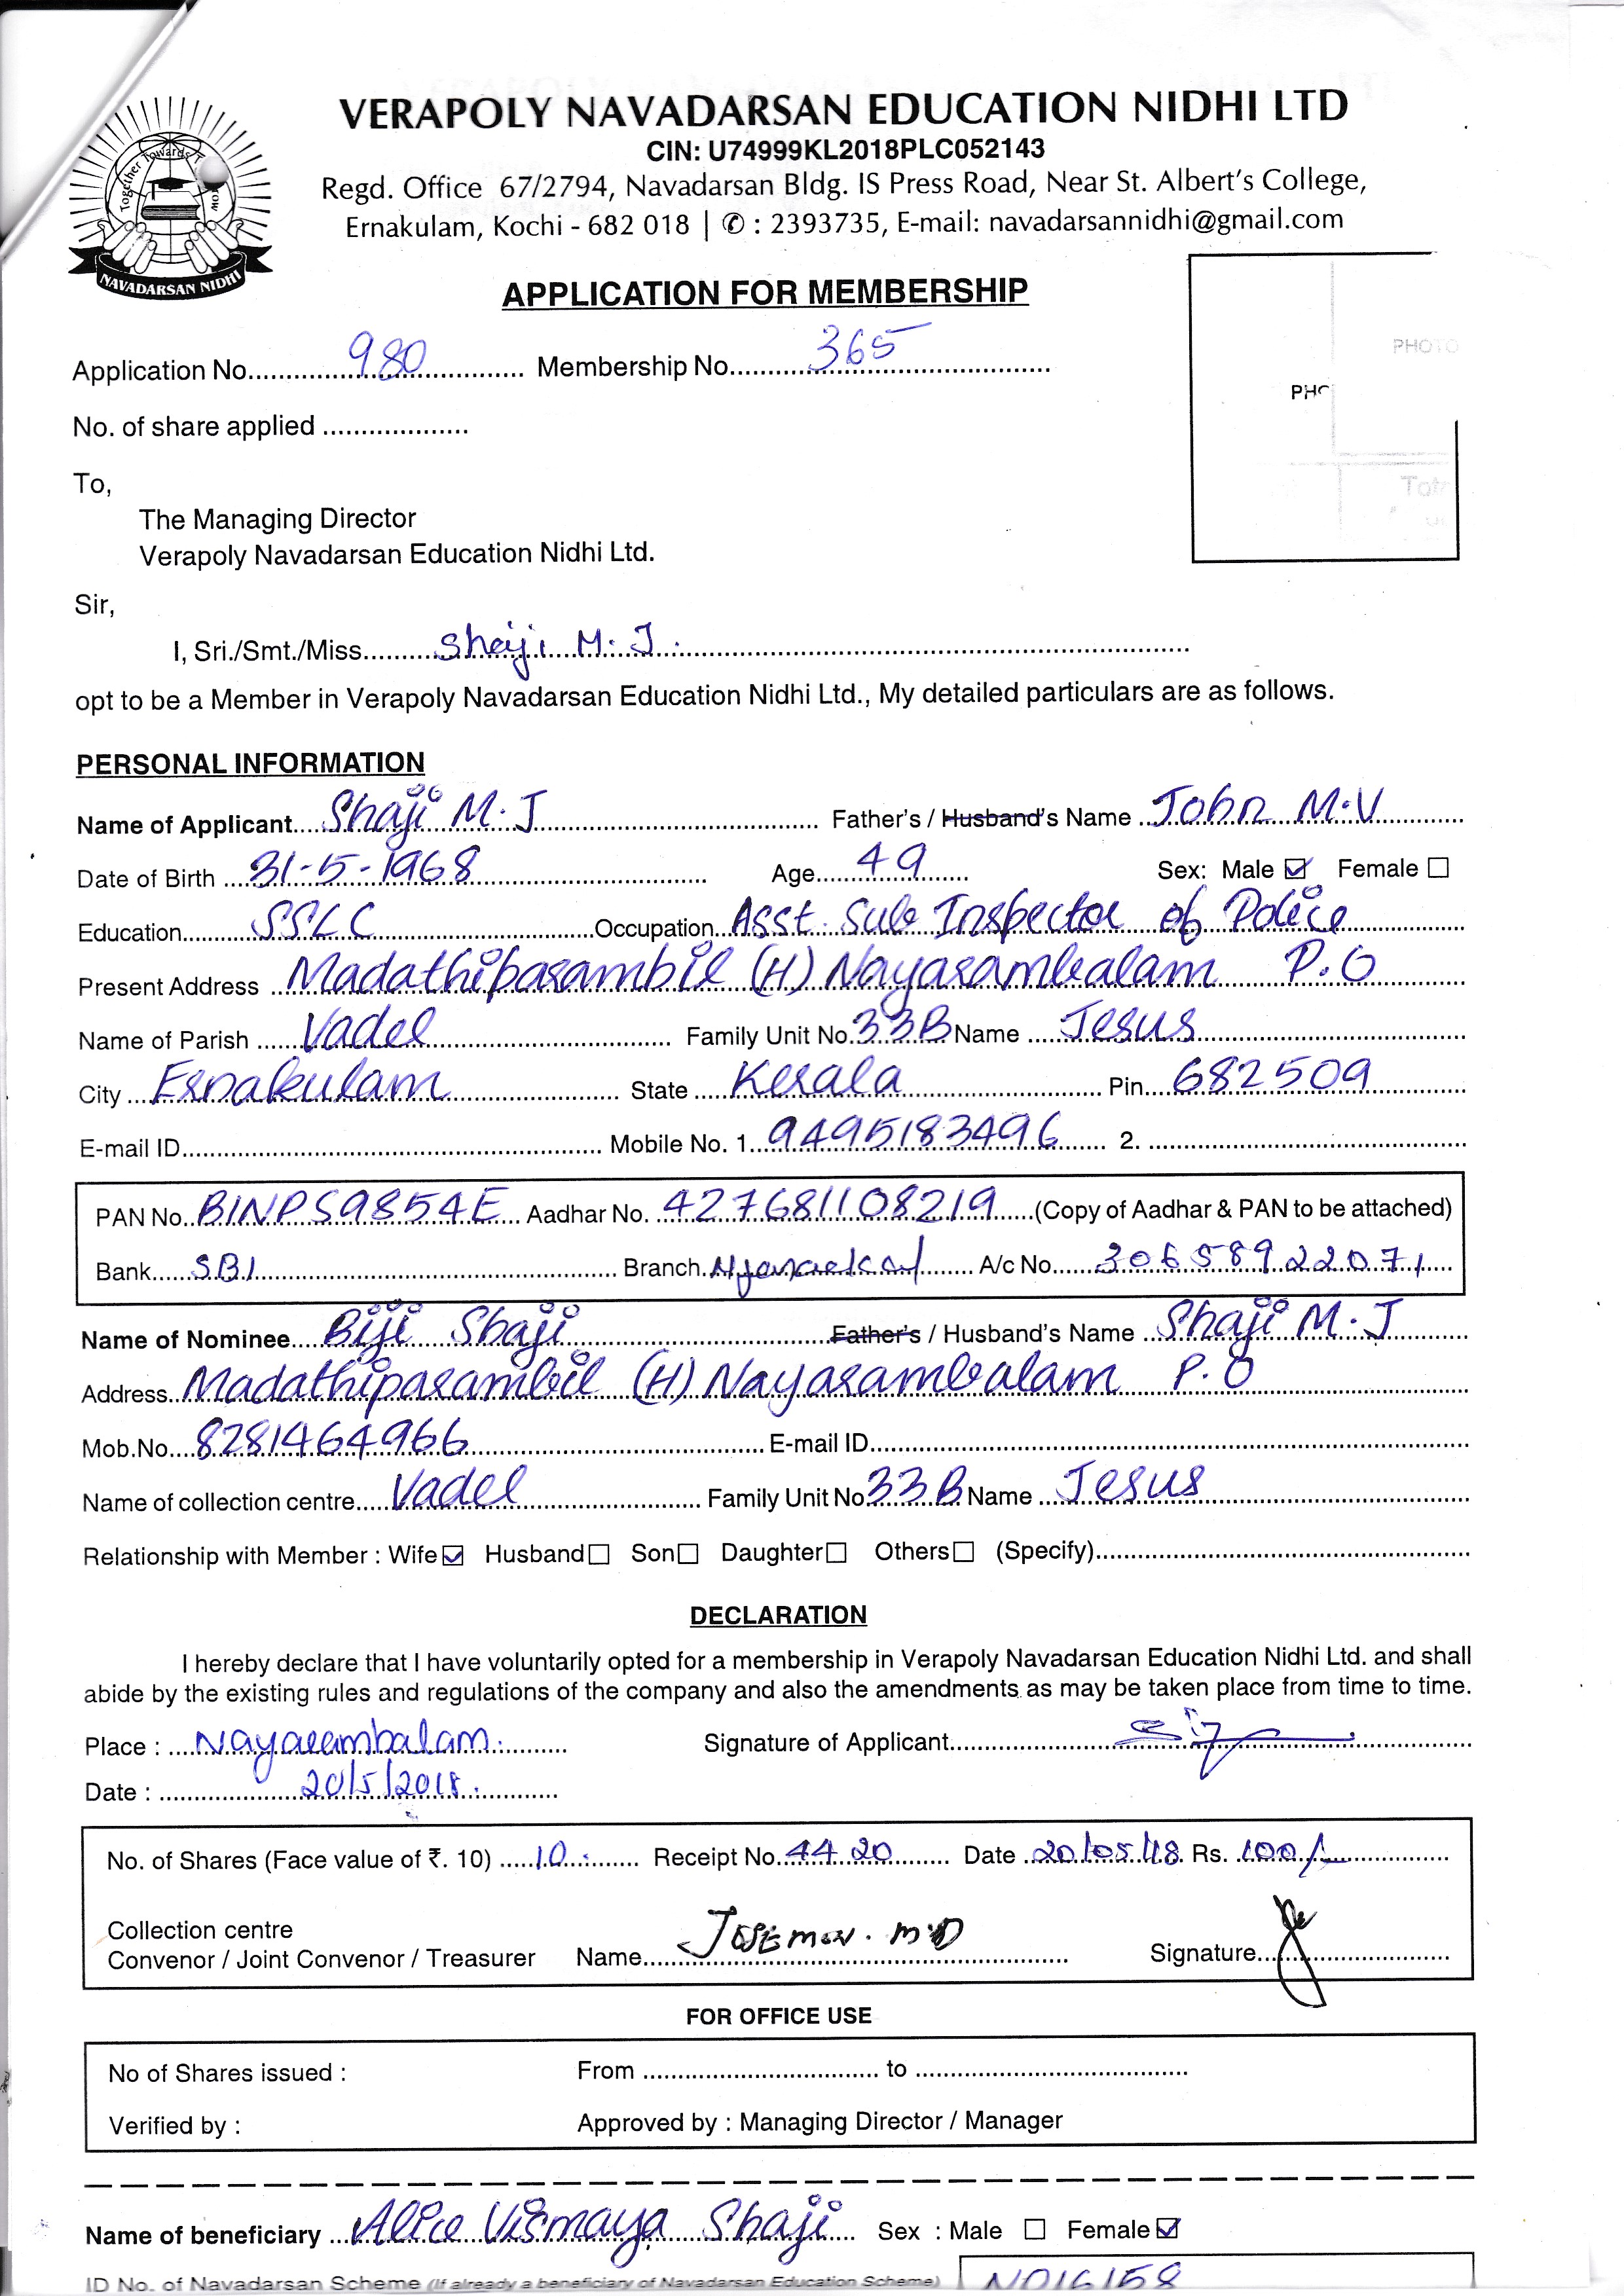 VERAPOLY NAVADARSAN EDUCATION NIDHI LTD
CIN: U74999KL2018PLC052143
Regd. Office 67/2794, Navadarsan Bldg. IS Press Road, Near St. Albert's College,
Ernakulam, Kochi - 682 018 | ✆ : 2393735, E-mail: navadarsannidhi@gmail.com
Together Towards
NAVADARSAN NIDHI
APPLICATION FOR MEMBERSHIP
PHOTO
Application No. 980 Membership No. 365
No. of share applied
To,
The Managing Director
Verapoly Navadarsan Education Nidhi Ltd.
Sir,
I, Sri./Smt./Miss. Shaji M.J.
opt to be a Member in Verapoly Navadarsan Education Nidhi Ltd., My detailed particulars are as follows.
PERSONAL INFORMATION
Name of Applicant Shaji M.J Father's / Husband's Name John M.V
Date of Birth 31-5-1968 Age 49 Sex: Male ☑ Female ☐
Education SSLC Occupation Asst. Sub Inspector of Police
Present Address Madathiparambil (H) Nayarambalam P.O
Name of Parish Vadel Family Unit No. 33B Name Jesus
City Ernakulam State Kerala Pin 682509
E-mail ID Mobile No. 1. 9495183496 2.
PAN No. BINPS9854E Aadhar No. 427681108219 (Copy of Aadhar & PAN to be attached)
Bank SBI Branch A/c No. 30658922071
Name of Nominee Biji Shaji Father's / Husband's Name Shaji M.J
Address Madathiparambil (H) Nayarambalam P.O
Mob.No. 8281464966 E-mail ID
Name of collection centre Vadel Family Unit No. 33B Name Jesus
Relationship with Member : Wife ☑ Husband ☐ Son ☐ Daughter ☐ Others ☐ (Specify)
DECLARATION
I hereby declare that I have voluntarily opted for a membership in Verapoly Navadarsan Education Nidhi Ltd. and shall
abide by the existing rules and regulations of the company and also the amendments as may be taken place from time to time.
Place : Nayarambalam. Signature of Applicant
Date : 20/5/2018.
No. of Shares (Face value of ₹. 10) 10 Receipt No. 4420 Date 20/05/18 Rs. 100/-
Collection centre
Convenor / Joint Convenor / Treasurer Name Josemon. M.D Signature
FOR OFFICE USE
No of Shares issued : From to
Verified by : Approved by : Managing Director / Manager
Name of beneficiary Alice Vismaya Shaji Sex : Male ☐ Female ☑
ID No. of Navadarsan Scheme (If already a beneficiary of Navadarsan Education Scheme) N016158